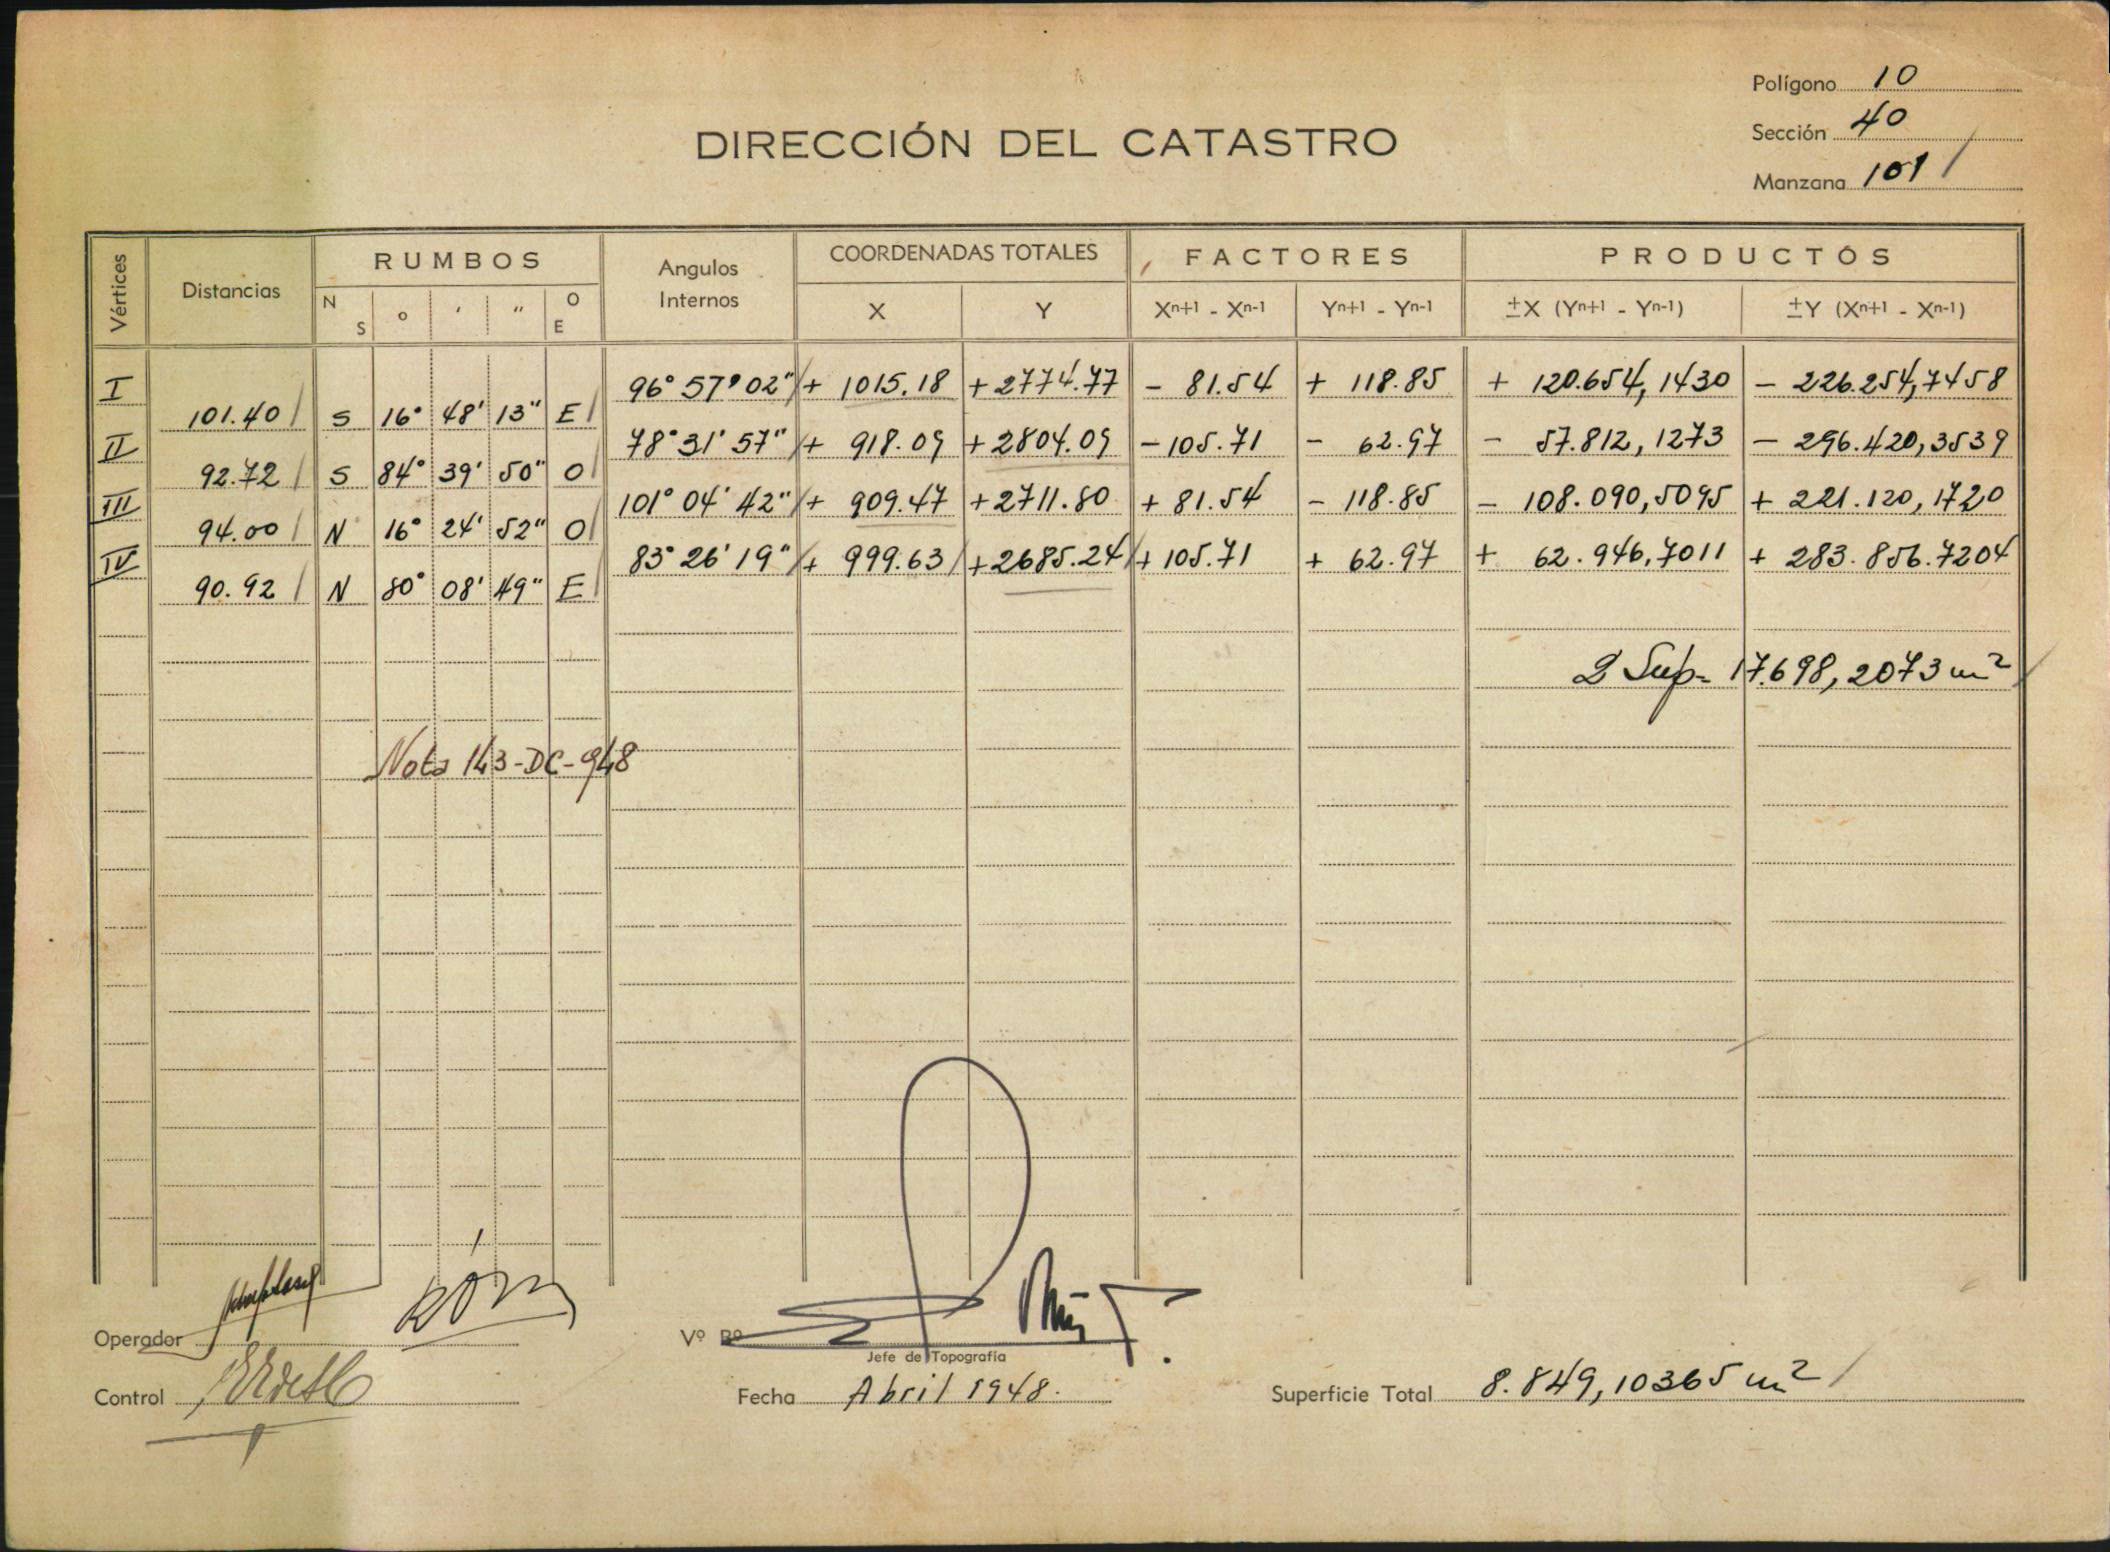 Polígono 10
Sección 40
Manzana 101 /
DIRECCIÓN DEL CATASTRO
Vértices Distancias RUMBOS Angulos Internos COORDENADAS TOTALES FACTORES PRODUCTÓS
N S ° ' " O E X Y Xⁿ⁺¹ - Xⁿ⁻¹ Yⁿ⁺¹ - Yⁿ⁻¹ ±X (Yⁿ⁺¹ - Yⁿ⁻¹) ±Y (Xⁿ⁺¹ - Xⁿ⁻¹)
I 96° 57' 02" / + 1015.18 + 2774.77 - 81.54 + 118.85 + 120.654,1430 - 226.254,7458
101.40 / S 16° 48' 13" E /
II 78° 31' 57" / + 918.09 + 2804.09 - 105.71 - 62.97 - 57.812,1273 - 296.420,3539
92.72 / S 84° 39' 50" O /
III 101° 04' 42" / + 909.47 + 2711.80 + 81.54 - 118.85 - 108.090,5095 + 221.120,1720
94.00 / N 16° 24' 52" O /
IV 83° 26' 19" / + 999.63 / + 2685.24 / + 105.71 + 62.97 + 62.946,7011 + 283.856.7204
90.92 / N 80° 08' 49" E /
2 Sup= 17.698,2073 m² /
Nota 143-DC-948
Operador
Control
Vº Bº
Jefe de Topografía
Fecha Abril 1948.
Superficie Total 8.849,10365 m² /